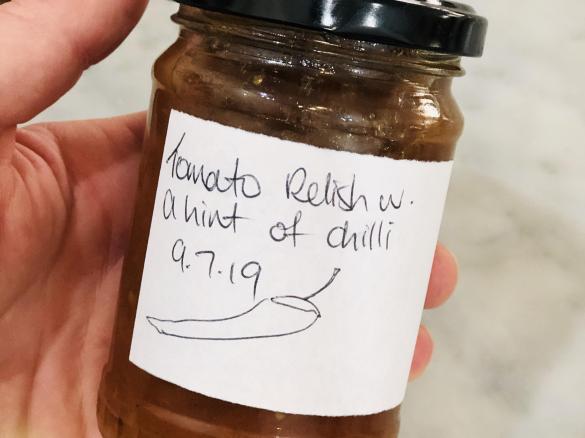 Tomato Relish w.
a hint of chilli
9.7.19